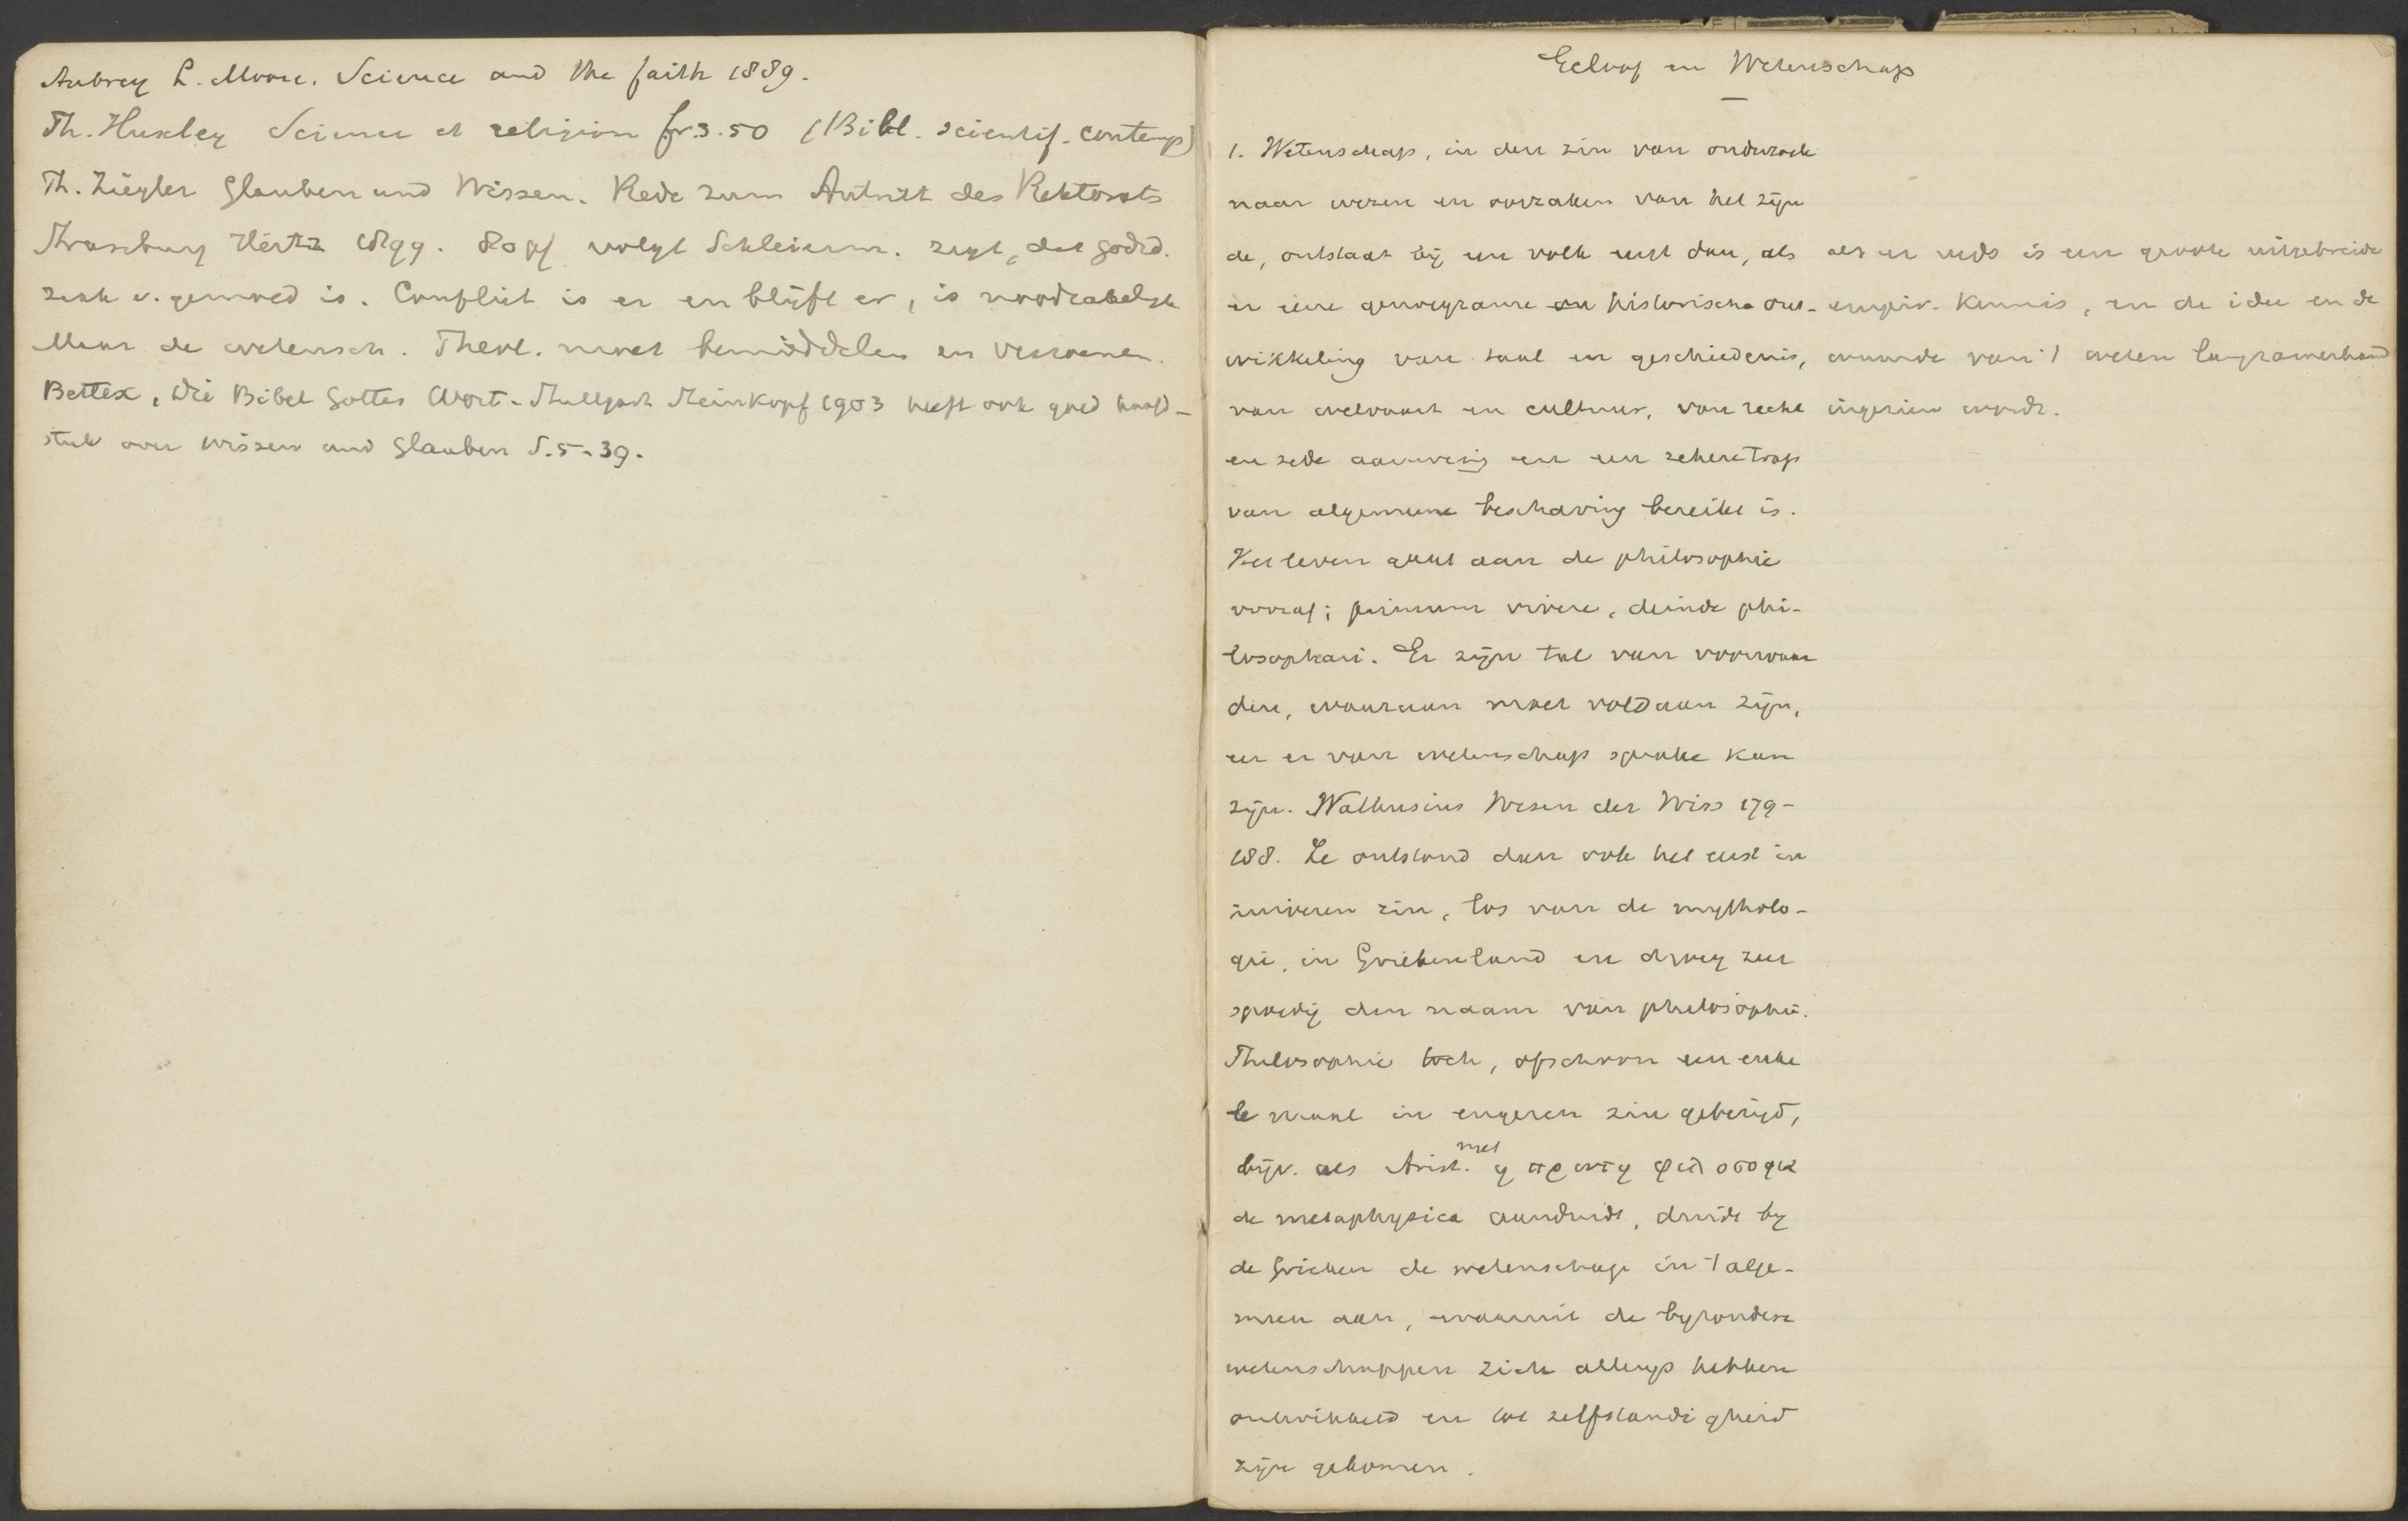 Aubrey L. Moore. Science and the faith 1889.
Th. Huxley Science et religion fr.3.50 (Bibl. scientif. contemp)
Th. Ziegler Glauben und Wissen. Rede zum Antritt des Rektorats
Strassburg Heitz 1899. 80 pf volgt Schleierm. zegt, dat godsd.
zaak v. gemoed is. Conflict is er en blijft er, is noodzakelijk
Maar de wetensch. Theol. moet bemiddelen en verzoenen.
Bettex, Die Bibel Gottes Wort - Stuttgart Steinkopf 1903 heeft ook goed hoofd-
stuk over wissen und Glauben S. 5-39.
Geloof en Wetenschap
1. Wetenschap, in den zin van onderzoek
naar wezen en oorzaken van het zijn
de, ontstaat bij een volk eerst dan, als
er eene genoegzame en historische ont-
wikkeling van taal en geschiedenis,
van welvaart en cultuur, van recht
en zede aanwezig en een zekere trap
van algemeene beschaving bereikt is.
Het leven gaat aan de philosophie
vooraf; primum vivere, deinde phi-
losophari. Er zijn tal van voorwaar
den, waaraan moet voldaan zijn,
eer er van wetenschap sprake kan
zijn. Nathusius Wesen der Wiss 179-
188. Ze ontstond dan ook het eerst in
zuiveren zin, los van de mytholo-
gie, in Griekenland en droeg zeer
spoedig den naam van philosophie.
Philosophie toch, ofschoon een enke
le maal in engeren zin gebezigd,
bijv. als Arist. met η πρωτη φιλοσοφια
de metaphysica aanduidt, duidt by
de Grieken de wetenschap in 't alge-
meen aan, waaruit de byzondere
wetenschappen zich allengs hebben
ontwikkeld en tot zelfstandigheid
zijn gekomen.
als er reeds is een groote uitgebreide
empir. kennis, en de idee en de
waarde van 't weten langzamerhand
ingezien wordt.